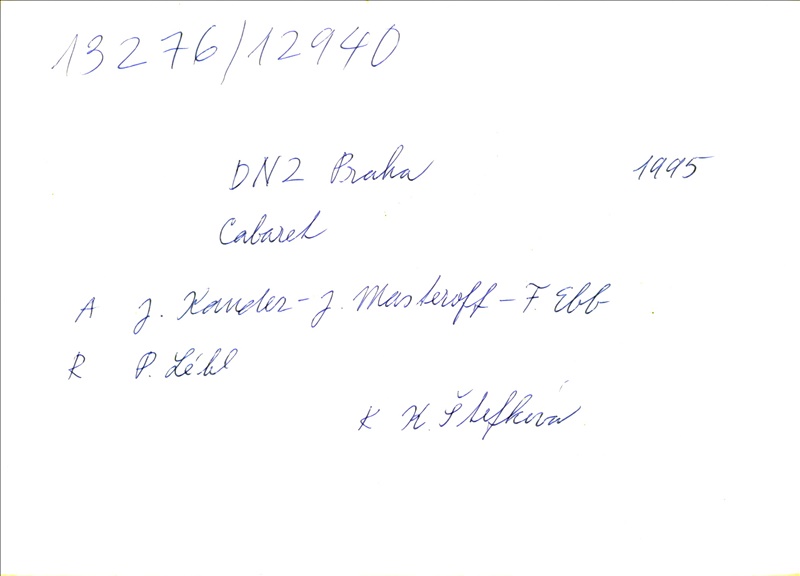 13276/12940
DNZ Praha 1995
Cabaret
A J. Kander - J. Masteroff - F. Ebb
R P. Lébl
K K. Štefková